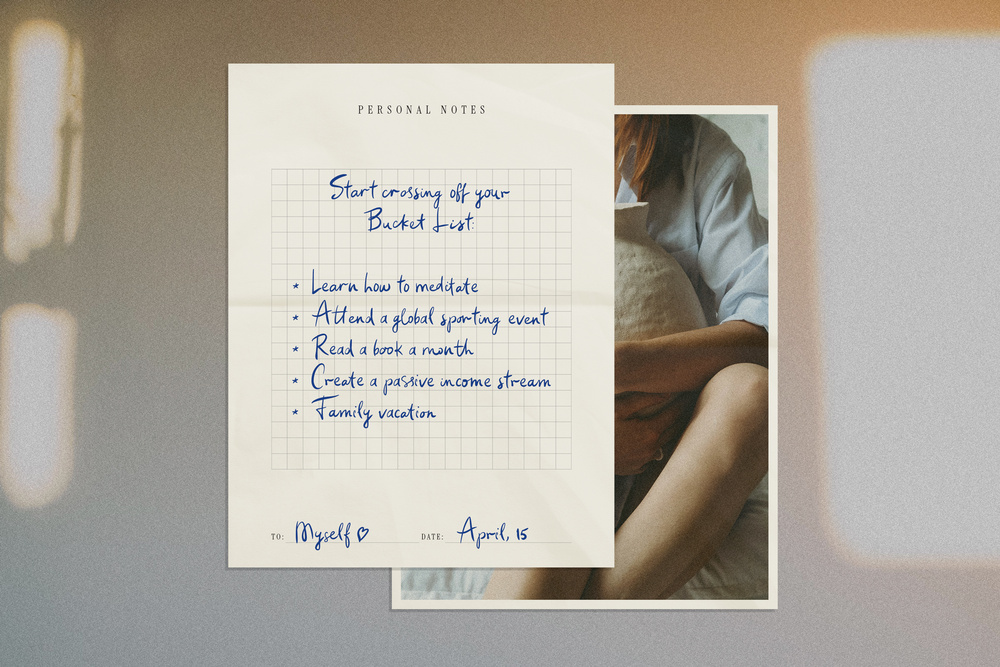 PERSONAL NOTES
Start crossing off your
Bucket List:
* Learn how to meditate
* Attend a global sporting event
* Read a book a month
* Create a passive income stream
* Family vacation
TO: Myself ♡ DATE: April, 15